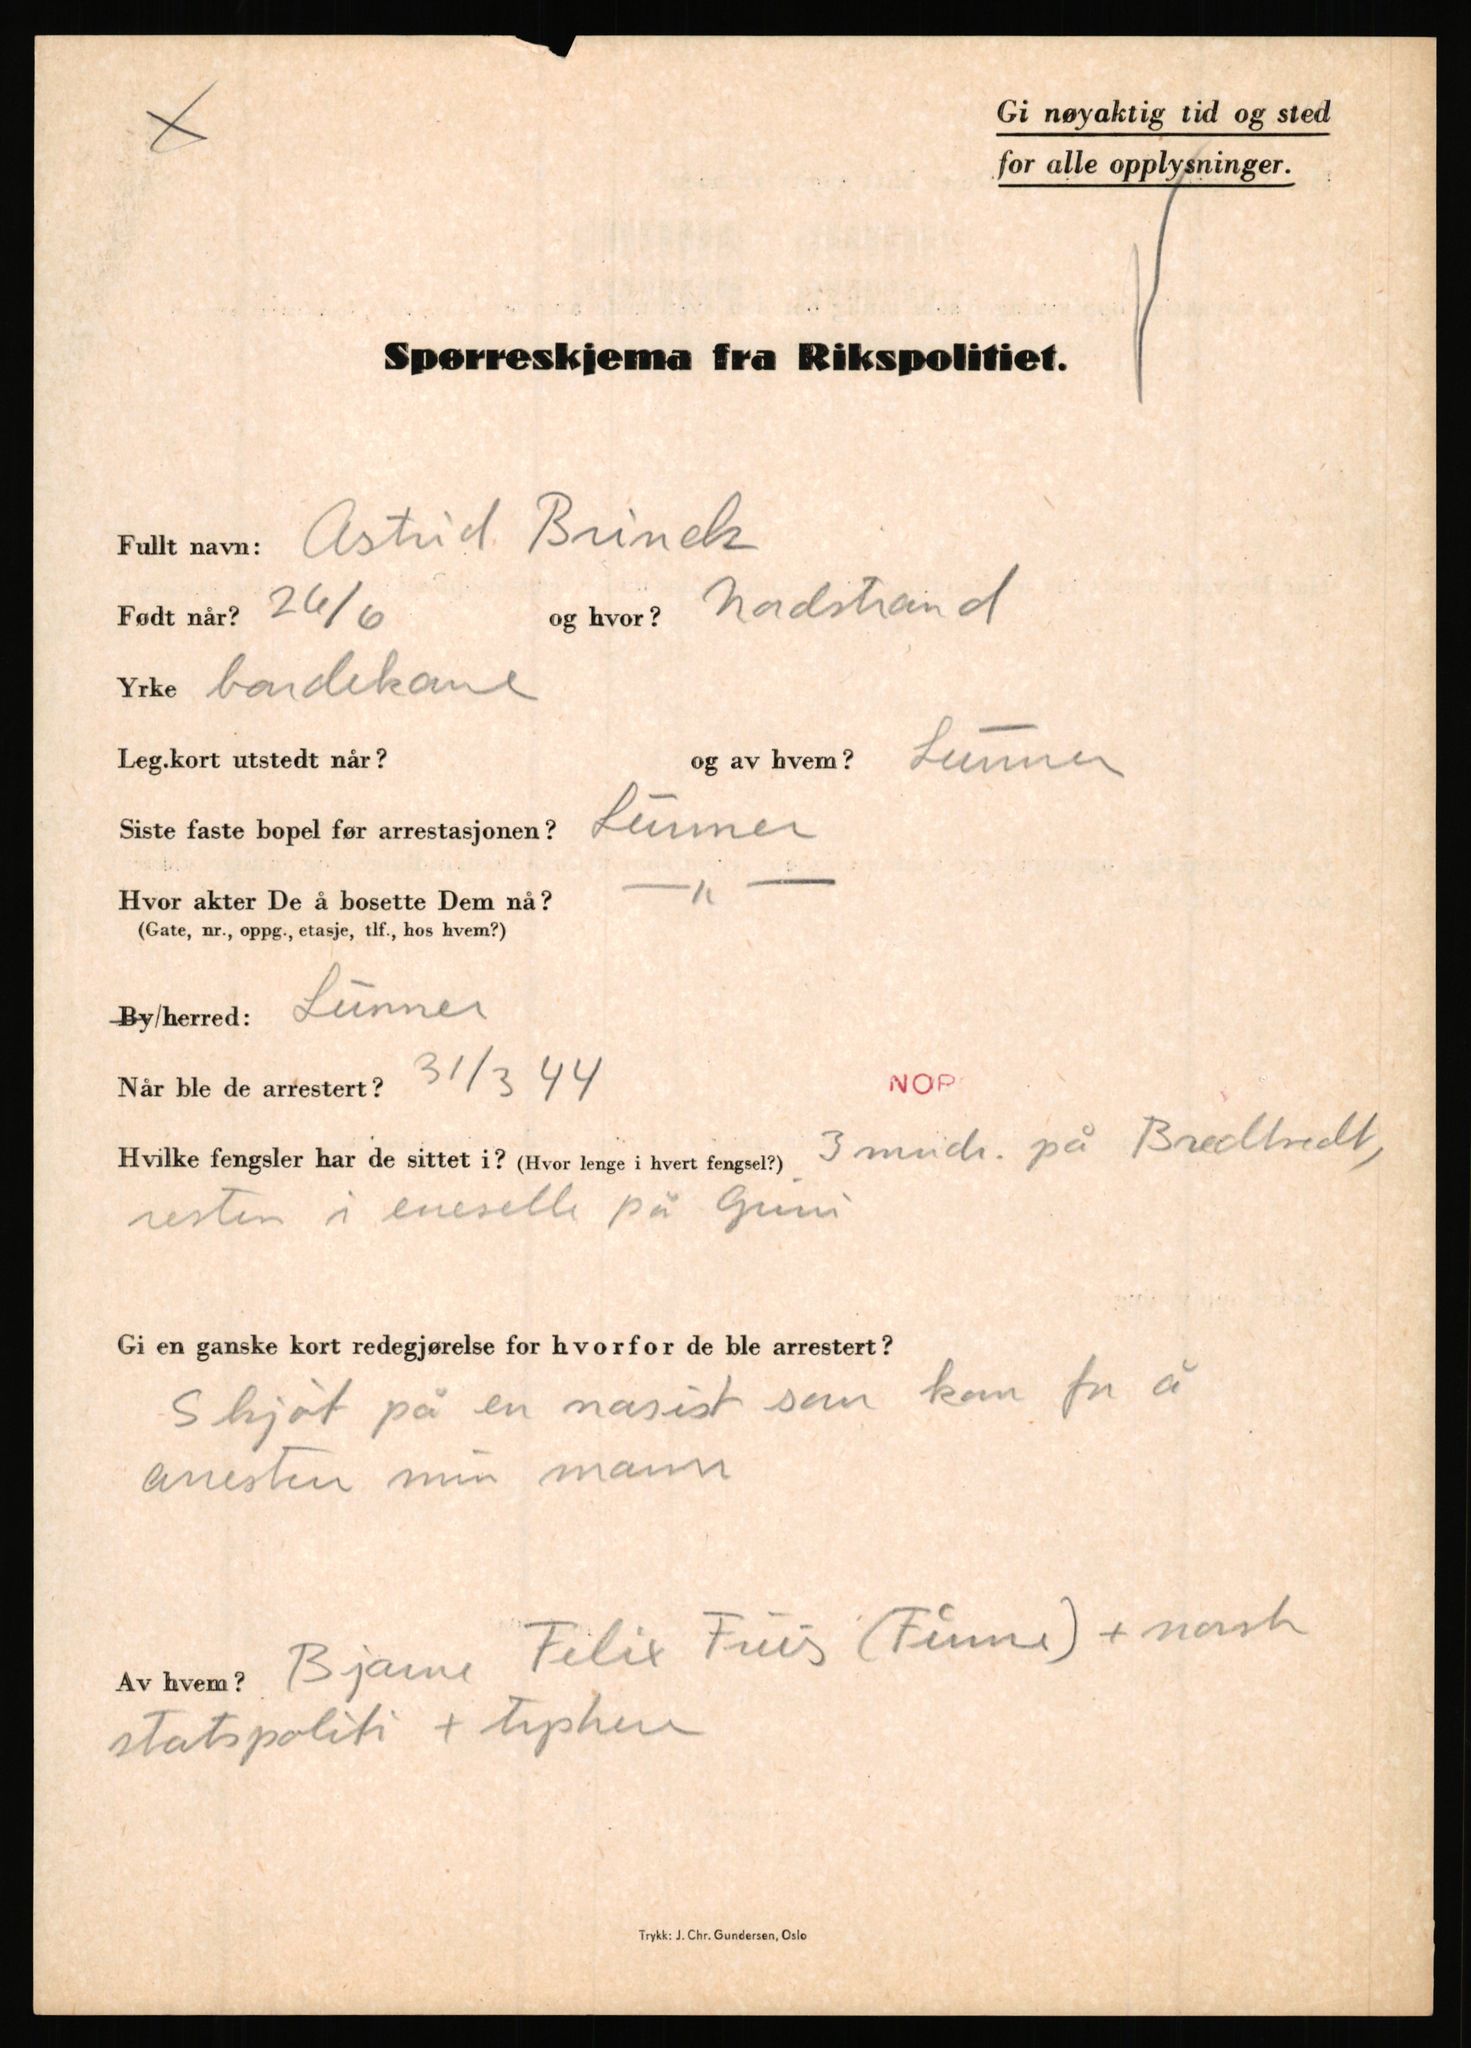 Gi nøyaktig tid og sted
for alle opplysninger.
Spørreskjema fra Rikspolitiet.
Fullt navn: Astrid Brinck
Født når? 26/6 og hvor? Nordstrand
Yrke bondekone
Leg.kort utstedt når? og av hvem? Lunner
Siste faste bopel før arrestasjonen? Lunner
Hvor akter De å bosette Dem nå? — " —
(Gate, nr., oppg., etasje, tlf., hos hvem?)
By/herred: Lunner
Når ble de arrestert? 31/3 44 NOP
Hvilke fengsler har de sittet i? (Hvor lenge i hvert fengsel?) 3 mndr. på Bredtvedt,
resten i enecelle på Grini
Gi en ganske kort redegjørelse for hvorfor de ble arrestert?
Skjøt på en nasist som kom for å
arrestere min mann
Av hvem? Bjarne Felix Friis (Finne) + norsk
statspoliti + tyskere
Trykk: J. Chr. Gundersen, Oslo